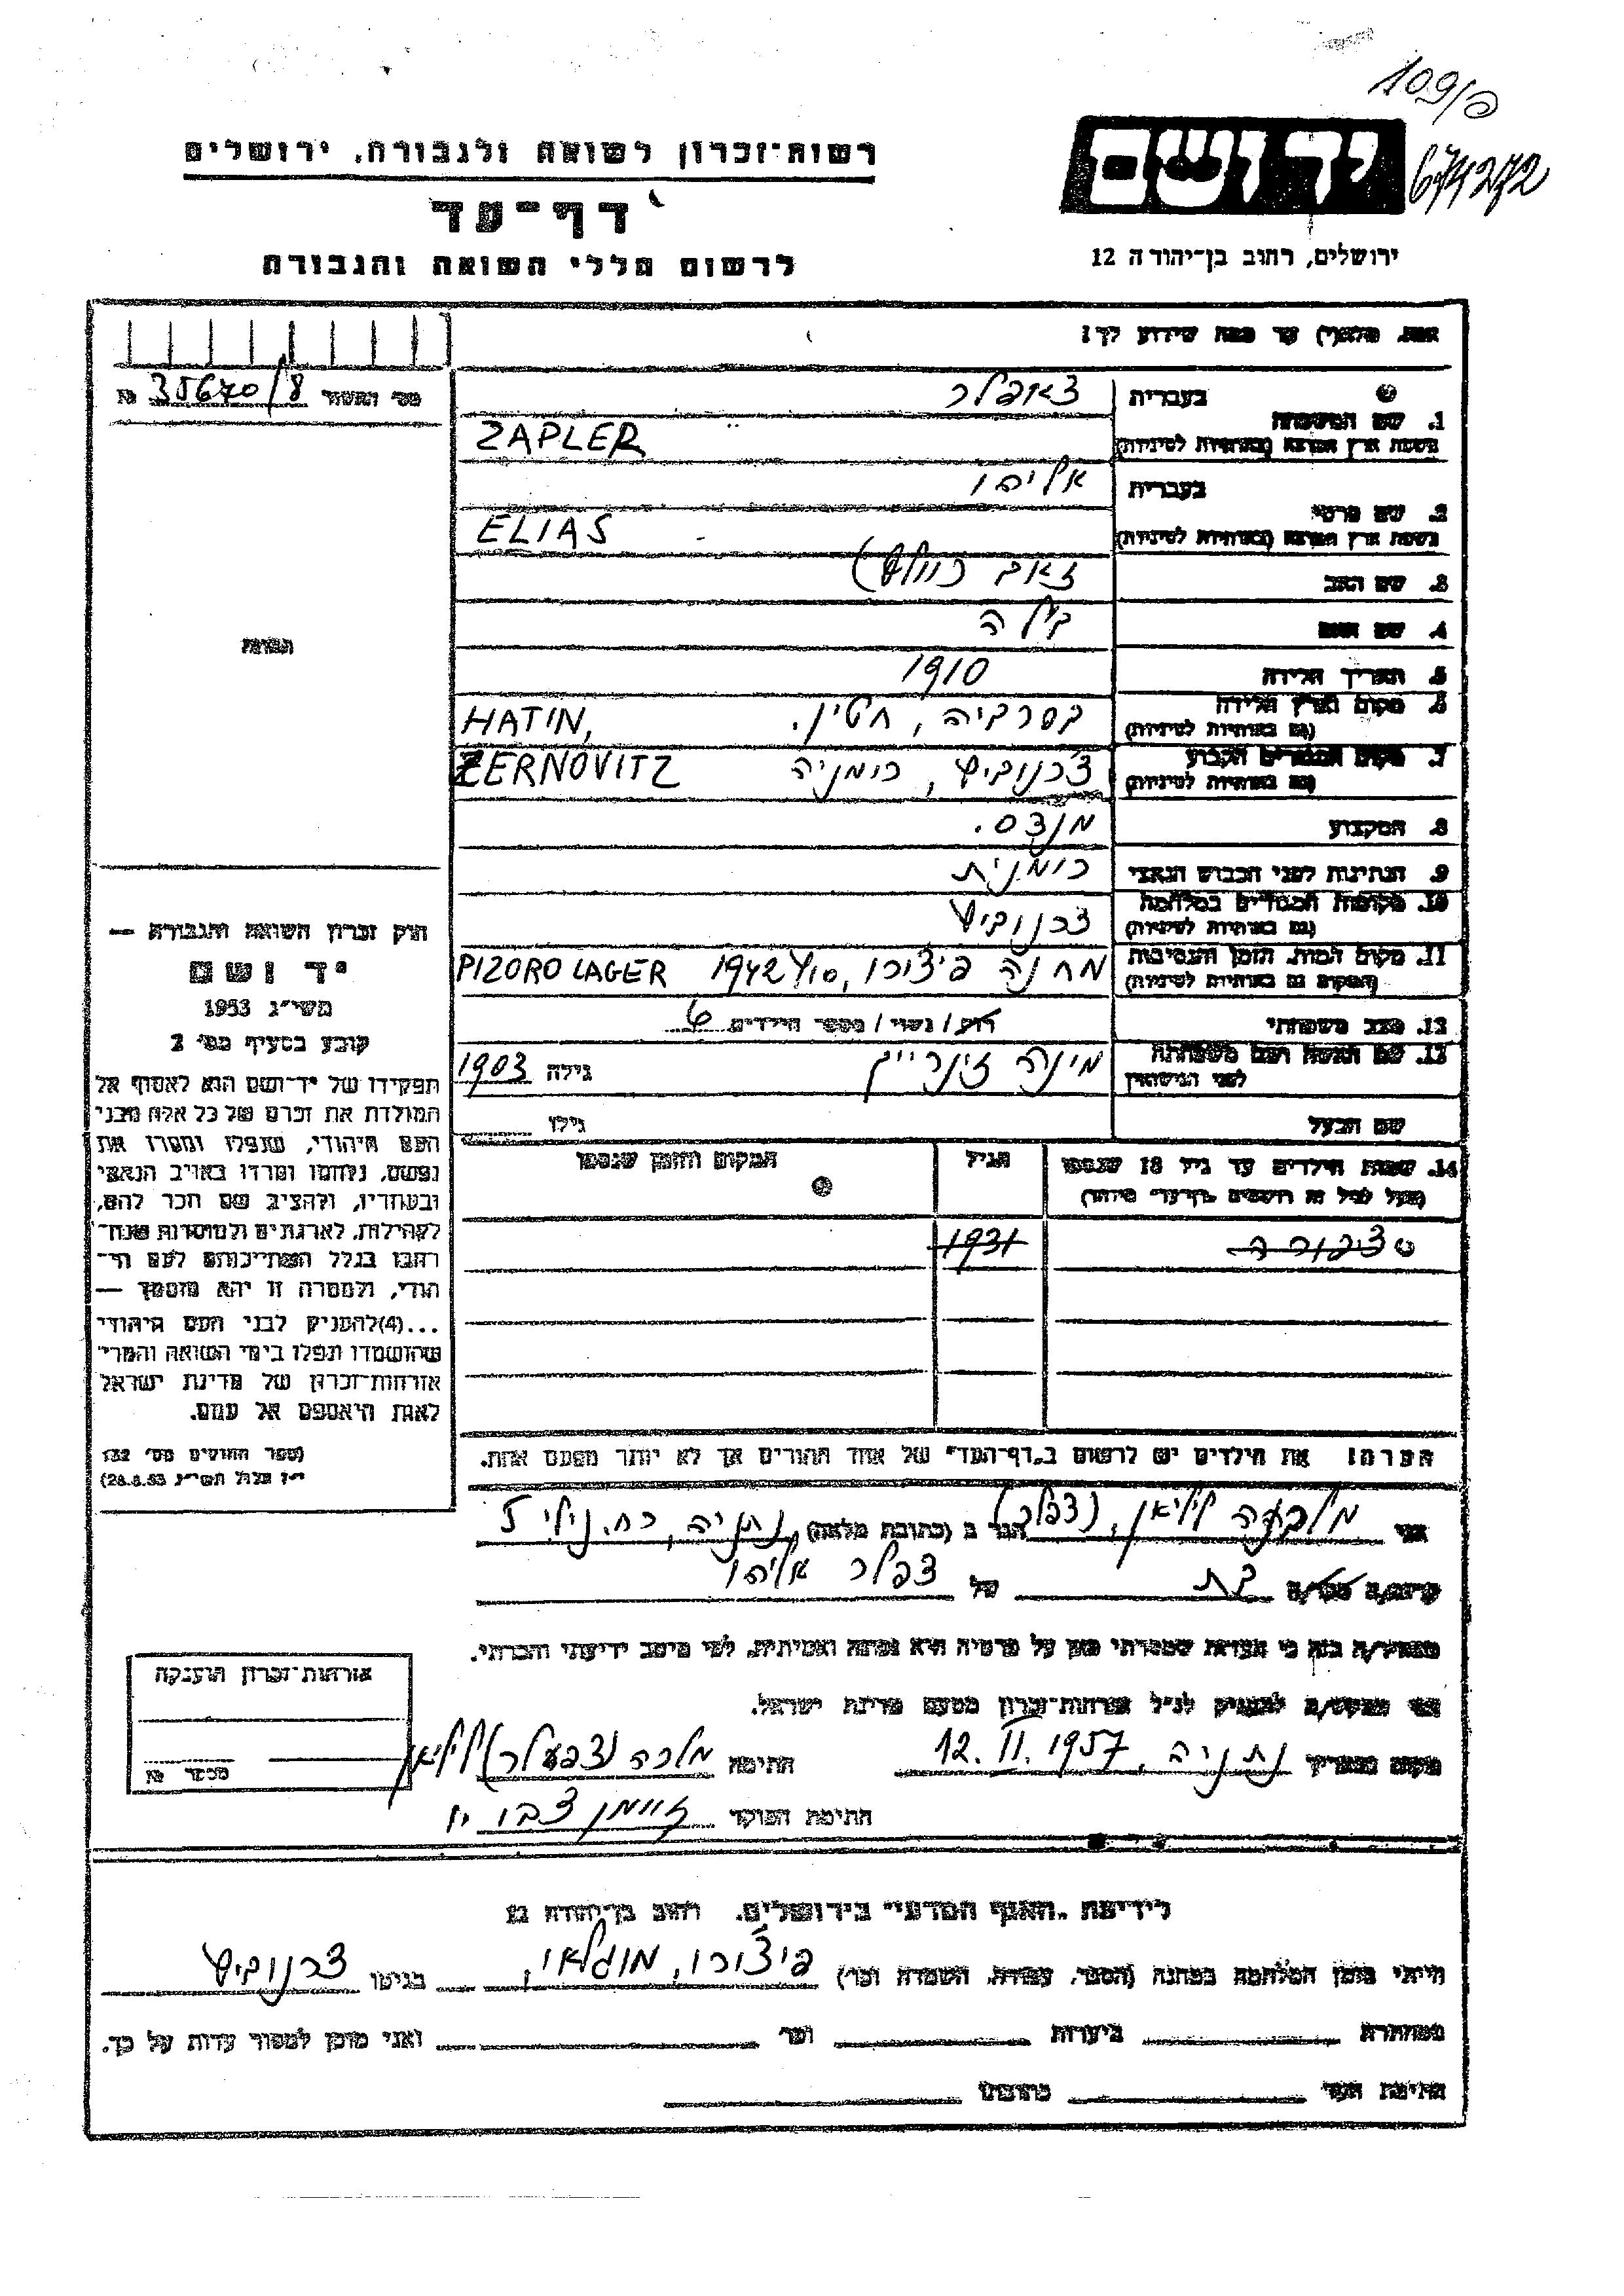 109/פ
674272
יד ושם
ירושלים, רחוב בן־יהודה 12
רשות־זכרון לשואה ולגבורה, ירושלים
דף־עד
לרשום חללי השואה והגבורה
נא, מלא(י) עד כמה שידוע לך!
35670/8
בעברית צאפלר
1. שם המשפחה
בשפת ארץ המוצא (באותיות לטיניות) ZAPLER
בעברית אליהו
2. שם פרטי
בשפת ארץ המוצא (באותיות לטיניות) ELIAS
3. שם האב זאב (וולף)
4. שם האם בילה
5. תאריך הלידה 1910
6. מקום וארץ הלידה
(גם באותיות לטיניות) בסרביה, חטין. HATIN,
7. מקום המגורים הקבוע
(גם באותיות לטיניות) צ'רנוביץ, רומניה ZERNOVITZ
8. המקצוע
9. הנתינות לפני הכבוש הנאצי רומנית
10. מקומות המגורים במלחמה
(גם באותיות לטיניות) צרנוביץ
11. מקום המות, הזמן והנסיבות
(המקום גם באותיות לטיניות) מחנה פיצ'ורו, 1942 PIZORO LAGER
12. מצב משפחתי רוק/ נשוי / מספר הילדים 6
13. שם האשה ושם משפחתה
לפני הנישואין מינה גילה 1903
שם הבעל גילו
14. שמות הילדים עד גיל 18 שנספו הגיל המקום והזמן שנספו
(מעל לגיל זה רושמים דף־עד מיוחד)
צפורה 1931
תמונה
חוק זכרון השואה והגבורה —
יד ושם
תשי״ג 1953
קובע בסעיף מס׳ 2
תפקידו של יד־ושם הוא לאסוף אל
המולדת את זכרם של כל אלה מבני
העם היהודי, שנפלו ומסרו את
נפשם, נלחמו ומרדו באויב הנאצי
ובעוזריו, ולהציב שם וזכר להם,
לקהילות, לארגונים ולמוסדות שנח־
רבו בגלל השתייכותם לעם הי־
הודי, ולמטרה זו יהא מוסמך —
...(4)להעניק לבני העם היהודי
שהושמדו ונפלו בימי השואה והמרי
אזרחות־זכרון של מדינת ישראל
לאות היאספם אל עמם.
(ספר החוקים מס׳ 132
י״ז אלול תשי״ג 28.8.53)
הערה! את הילדים יש לרשום ב„דף־העד״ של אחד ההורים אך לא יותר מפעם אחת.
אני ליליאן, (צפלר) הגר ב (כתובת מלאה) נתניה, רח. נילי 5
קרוב/ה בת של צפלר אליהו
מצהיר/ה בזה כי העדות שמסרתי כאן על פרטיה היא נכונה ואמיתית, לפי מיטב ידיעתי והכרתי.
אני מבקש/ת להעניק לנ״ל אזרחות־זכרון מטעם מדינת ישראל.
מקום ותאריך נתניה, 12.II.1957 חתימה מלכה (צפעלר) ליליאן
חתימת הפוקד
אזרחות־זכרון הוענקה
מספר №
לידיעת „האגף המדעי״ בירושלים, רחוב בן־יהודה 12
הייתי בזמן המלחמה במחנה (הסגר, עבודה, השמדה וכו׳) פיצ'ורו, מוגלאו, בגיטו צרנוביץ
במחתרת ביערות וכו׳ ואני מוכן למסור עדות על כך.
חתימת העד כתובתו